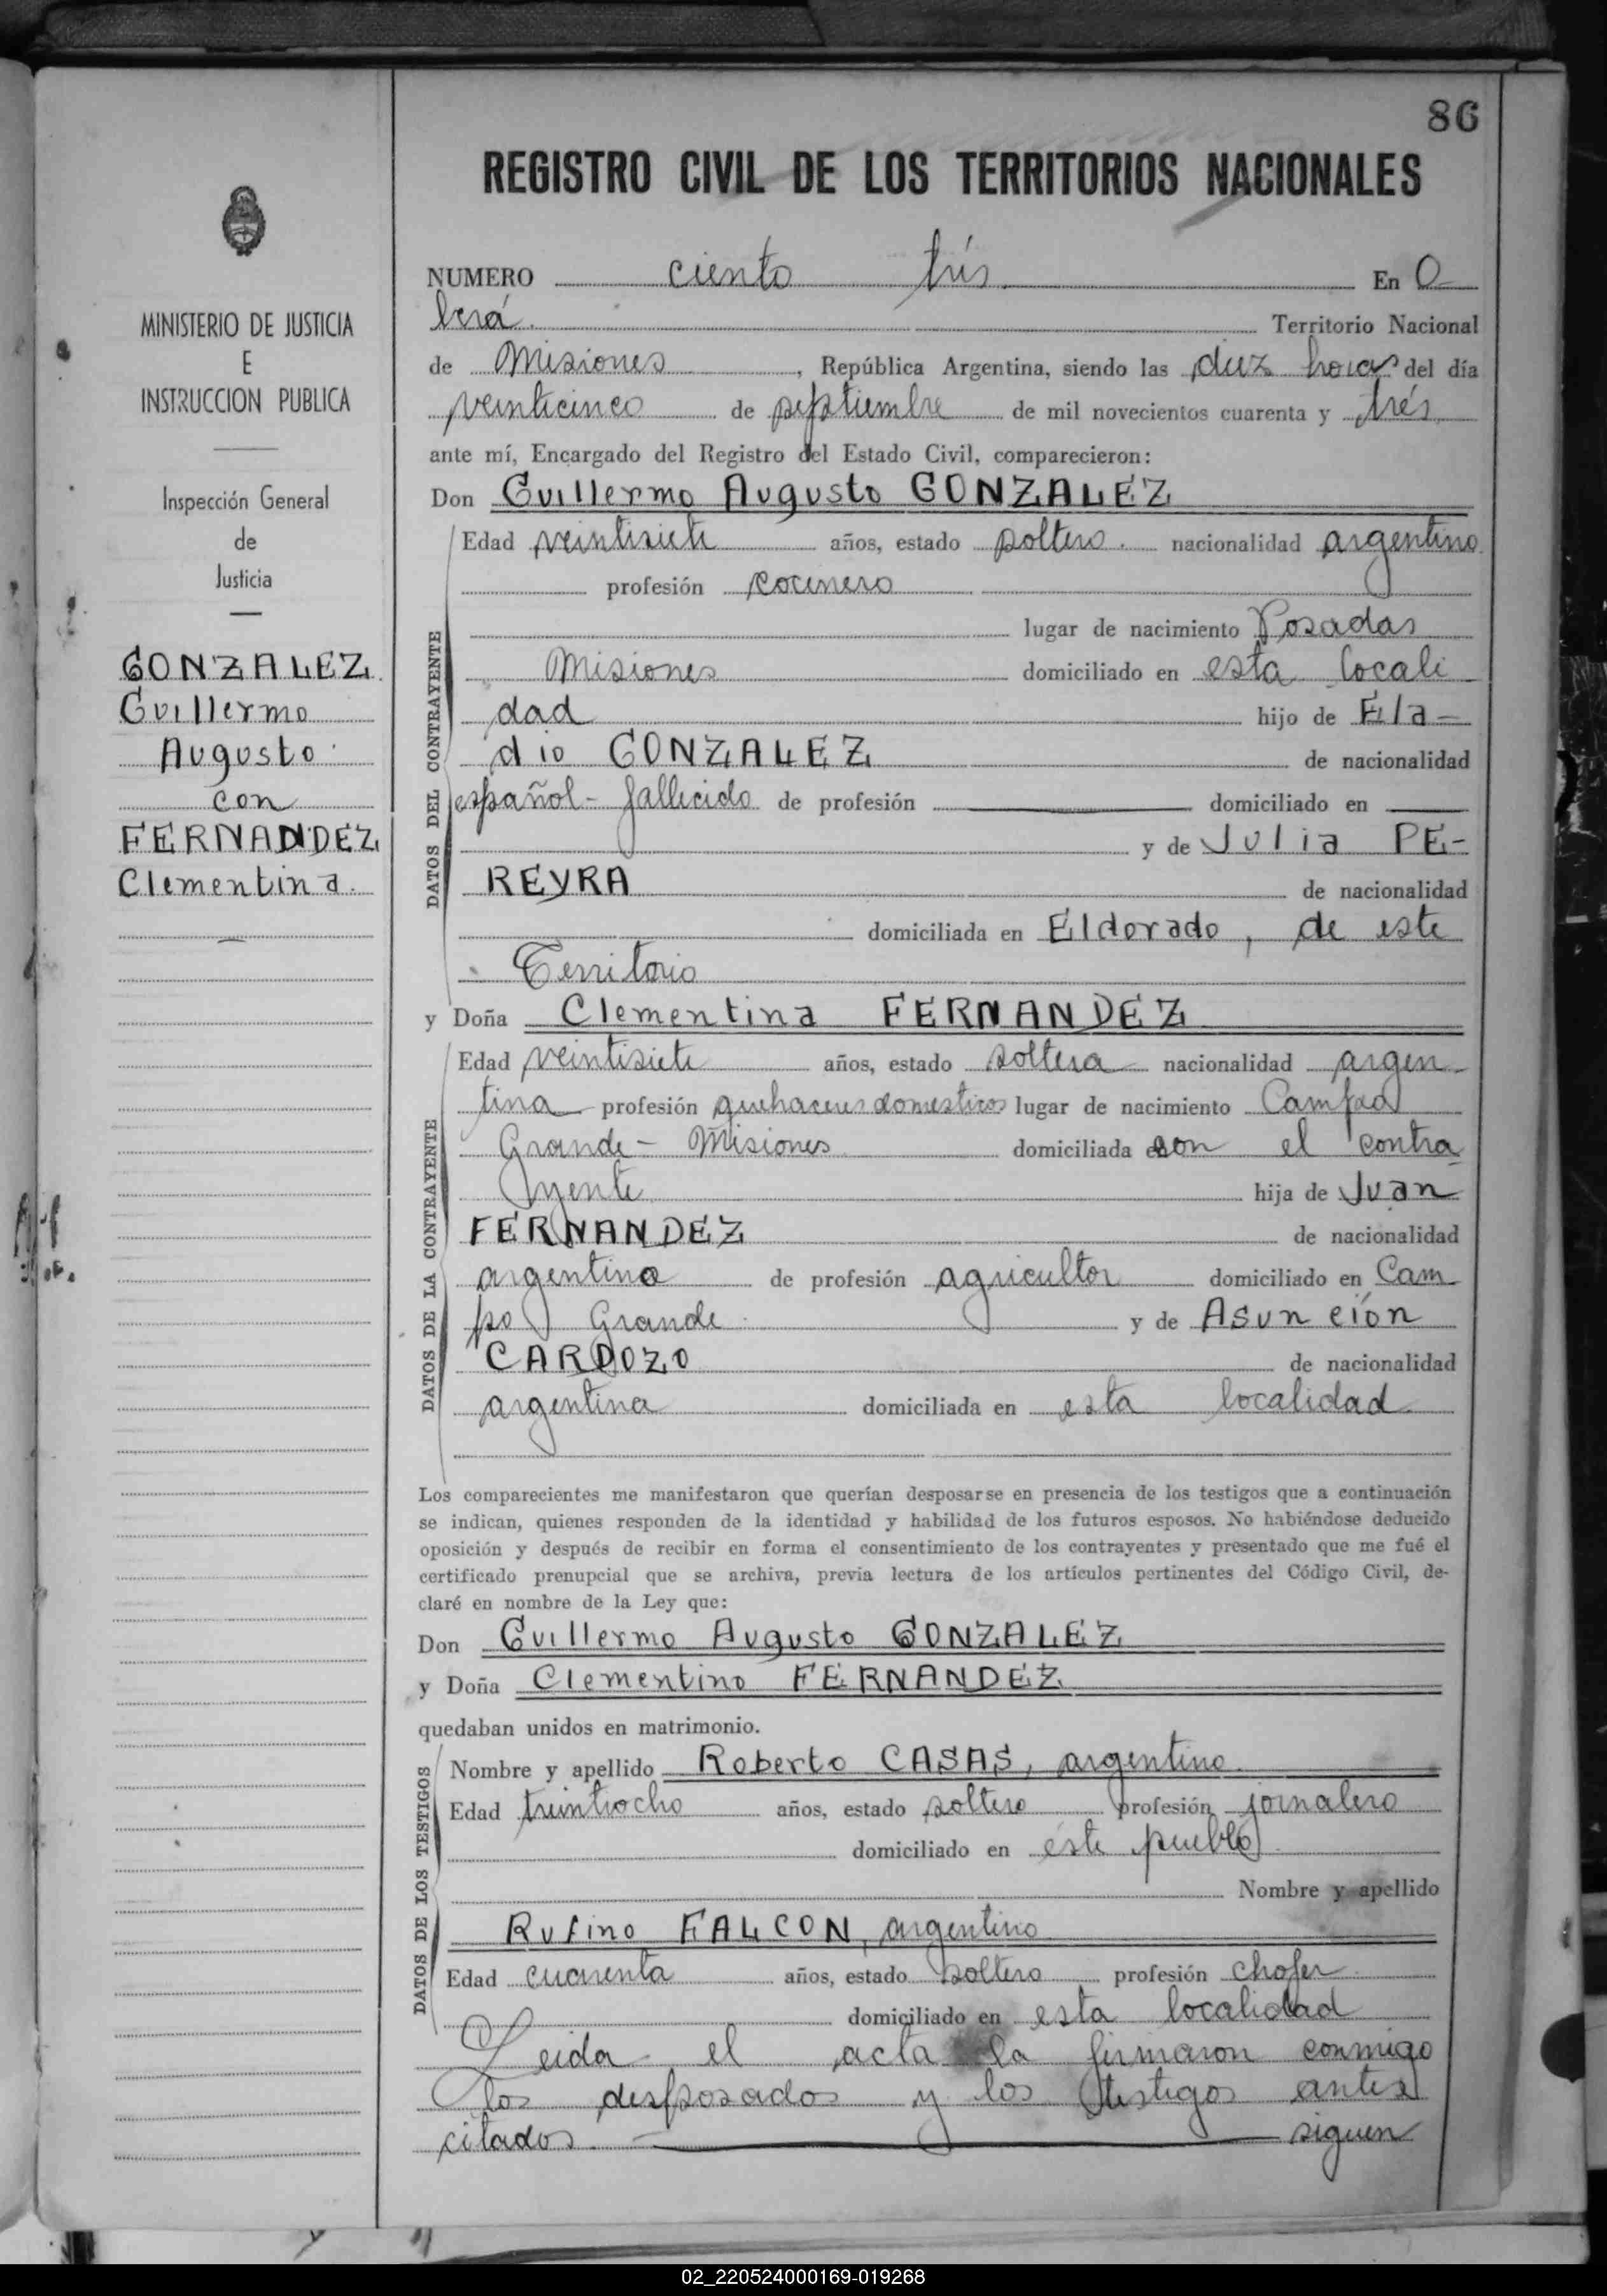 86
REGISTRO CIVIL DE LOS TERRITORIOS NACIONALES
MINISTERIO DE JUSTICIA
E
INSTRUCCION PUBLICA
Inspección General
de
Justicia
GONZALEZ
Guillermo
Augusto
con
FERNANDEZ
Clementina.
NUMERO ciento trés En O-
berá. Territorio Nacional
de Misiones, República Argentina, siendo las diez horas del día
veinticinco de septiembre de mil novecientos cuarenta y trés
ante mí, Encargado del Registro del Estado Civil, comparecieron:
Don Guillermo Augusto GONZALEZ
DATOS DEL CONTRAYENTE
Edad veintisiete años, estado soltero. nacionalidad argentino
profesión cocinero
lugar de nacimiento Posadas
Misiones domiciliado en esta locali
dad hijo de Ela-
dio GONZALEZ de nacionalidad
español- fallecido de profesión domiciliado en
y de Julia PE-
REYRA de nacionalidad
domiciliada en Eldorado, de este
Territorio
y Doña Clementina FERNANDEZ
DATOS DE LA CONTRAYENTE
Edad veintisiete años, estado soltera nacionalidad argen-
tina profesión quehaceres domesticos lugar de nacimiento Campo
Grande- Misiones domiciliada con el contra
yente hija de Juan
FERNANDEZ de nacionalidad
argentino de profesión agricultor domiciliado en Cam-
po Grande y de Asunción
CARDOZO de nacionalidad
argentina domiciliada en esta localidad
Los comparecientes me manifestaron que querían desposarse en presencia de los testigos que a continuación
se indican, quienes responden de la identidad y habilidad de los futuros esposos. No habiéndose deducido
oposición y después de recibir en forma el consentimiento de los contrayentes y presentado que me fué el
certificado prenupcial que se archiva, previa lectura de los artículos pertinentes del Código Civil, de-
claré en nombre de la Ley que:
Don Guillermo Augusto GONZALEZ
y Doña Clementino FERNANDEZ
quedaban unidos en matrimonio.
DATOS DE LOS TESTIGOS
Nombre y apellido Roberto CASAS, argentino.
Edad treintiocho años, estado soltero profesión jornalero
domiciliado en éste pueblo
Nombre y apellido
Rufino FALCON, argentino
Edad cuarenta años, estado soltero profesión chofer
domiciliado en esta localidad
Leida el acta la firmaron conmigo
los desposados y los testigos antes
citados. siguen
02_220524000169-019268